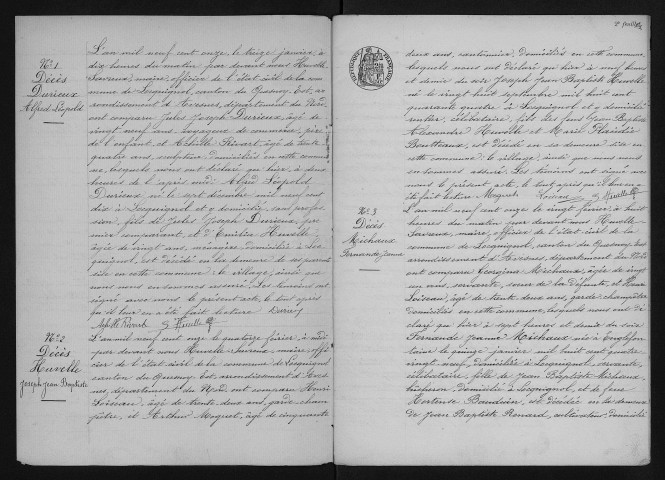 N° 1
Décès
Durieux
Alfred Léopold
L'an mil neuf cent onze, le treize janvier, à
dix heures du matin par devant nous Huvelle
Sauveur, maire, officier de l'état civil de la com
mune de Locquignol, canton du Quesnoy Est, ar
rondissement d'Avesnes, département du Nord
ont comparu Jules Joseph Durieux, âgé de
vingt neuf ans, voyageur de commerce, père
de l'enfant et Achille, âgé de trente
quatre ans, domiciliés en cette commu
ne, lesquels nous ont déclaré qu'hier, à deux
heures de l'après midi Alfred Léopold
Durieux, né le sept décembre mil neuf cent
dix à Locquignol et y domicilié, sans profes
sion, fils de Jules Joseph Durieux, pre
mier comparant, et d'Emilia Huvelle
âgée de vingt ans, ménagère, domiciliée à Loc
quignol, est décédé en la demeure de ses parents
sise en cette commune le village, ainsi que
nous nous en sommes assuré. Les témoins ont
signé avec nous le présent acte, le tout après
qu'il leur en a été fait lecture Durieux
S Huvelle
N° 2
Décès
Huvelle
Joseph Jean Baptiste
L'an mil neuf cent onze le quatorze février à midi
par devant nous Huvelle Sauveur, maire offi
cier de l'état civil de la commune de Locquignol
canton du Quesnoy Est, arrondissement d'Aves
nes, département du Nord ont comparu Henri
Loiseau, âgé de trente deux ans, garde cham
pêtre, et Arthur Moguet, âgé de cinquante
2e feuillet
deux ans, cantonnier, domiciliés en cette commune
lesquels nous ont déclaré qu'hier à neuf heures
et demie du soir Joseph Jean Baptiste Huvelle
né le vingt huit septembre mil huit cent
quarante quatre à Locquignol et y domicilié
rentier, célibataire, fils des feus Jean Baptiste
Alexandre Huvelle et Marie
est décédé en sa demeure sise en
cette commune le village, ainsi que nous nous
en sommes assuré. Les témoins ont signé avec
nous le présent acte, le tout après qu'il leur en a
été fait lecture Moguet Loiseau S Huvelle
N° 3
Décès
Michaux
Fernande Jeanne
L'an mil neuf cent onze le vingt février, à huit
heures du matin par devant nous Huvelle
Sauveur, maire, officier de l'état civil de la
commune de Locquignol, canton du Quesnoy Est
arrondissement d'Avesnes, département du Nord
ont comparu Georgina Michaux, âgée de vingt
un ans, servante, sœur de la défunte, et Henri
Loiseau, âgé de trente deux ans, garde champêtre
domiciliés en cette commune, lesquels nous ont dé
claré qu'hier à six heures et demie du soir
Fernande Jeanne Michaux née à Englefon
taine le quinze janvier mil huit cent quatre
vingt neuf, domiciliée à Locquignol, servante,
célibataire, fille de Jean Baptiste Michaux,
bûcheron, domicilié à Locquignol, et de feue
Hortense Baudouin, est décédée en la demeure
de Jean Baptiste Renard, cultivateur, domicilié